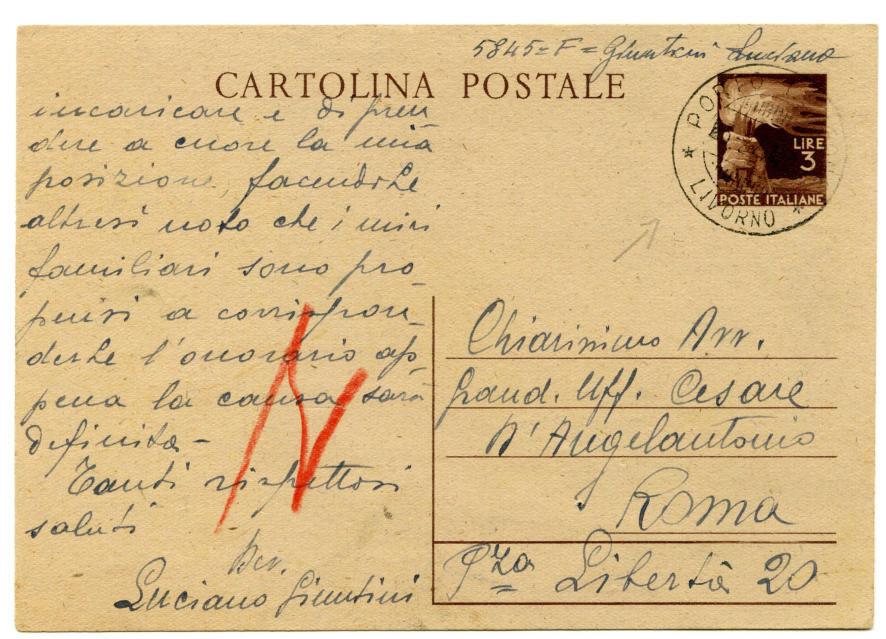 5845 = F = Giuntini Luciano
CARTOLINA POSTALE
LIRE
3
POSTE ITALIANE
PORTO
LIVORNO
incaricare e di pren
dere a cuore la mia
posizione, facendole
altresì noto che i miei
familiari sono pro
pensi a corrispon_
derle l'onorario ap
pena la causa sarà
definita -
Tanti rispettosi
saluti
Dev.
Luciano Giuntini
Chiarissimo Avv.
Grand. Uff. Cesare
D'Angelantonio
Roma
Pza Libertà 20